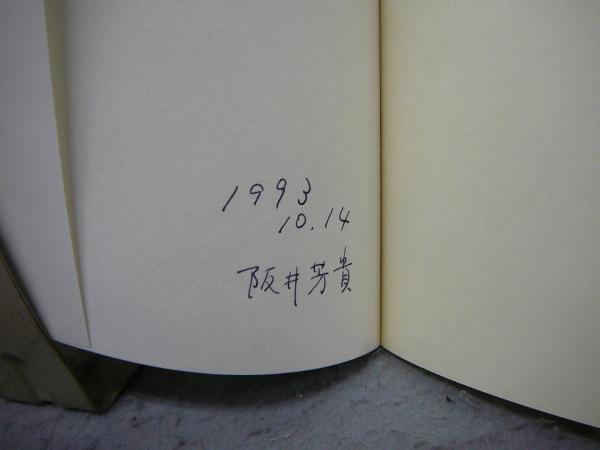 1993
10.14
阪井芳貴